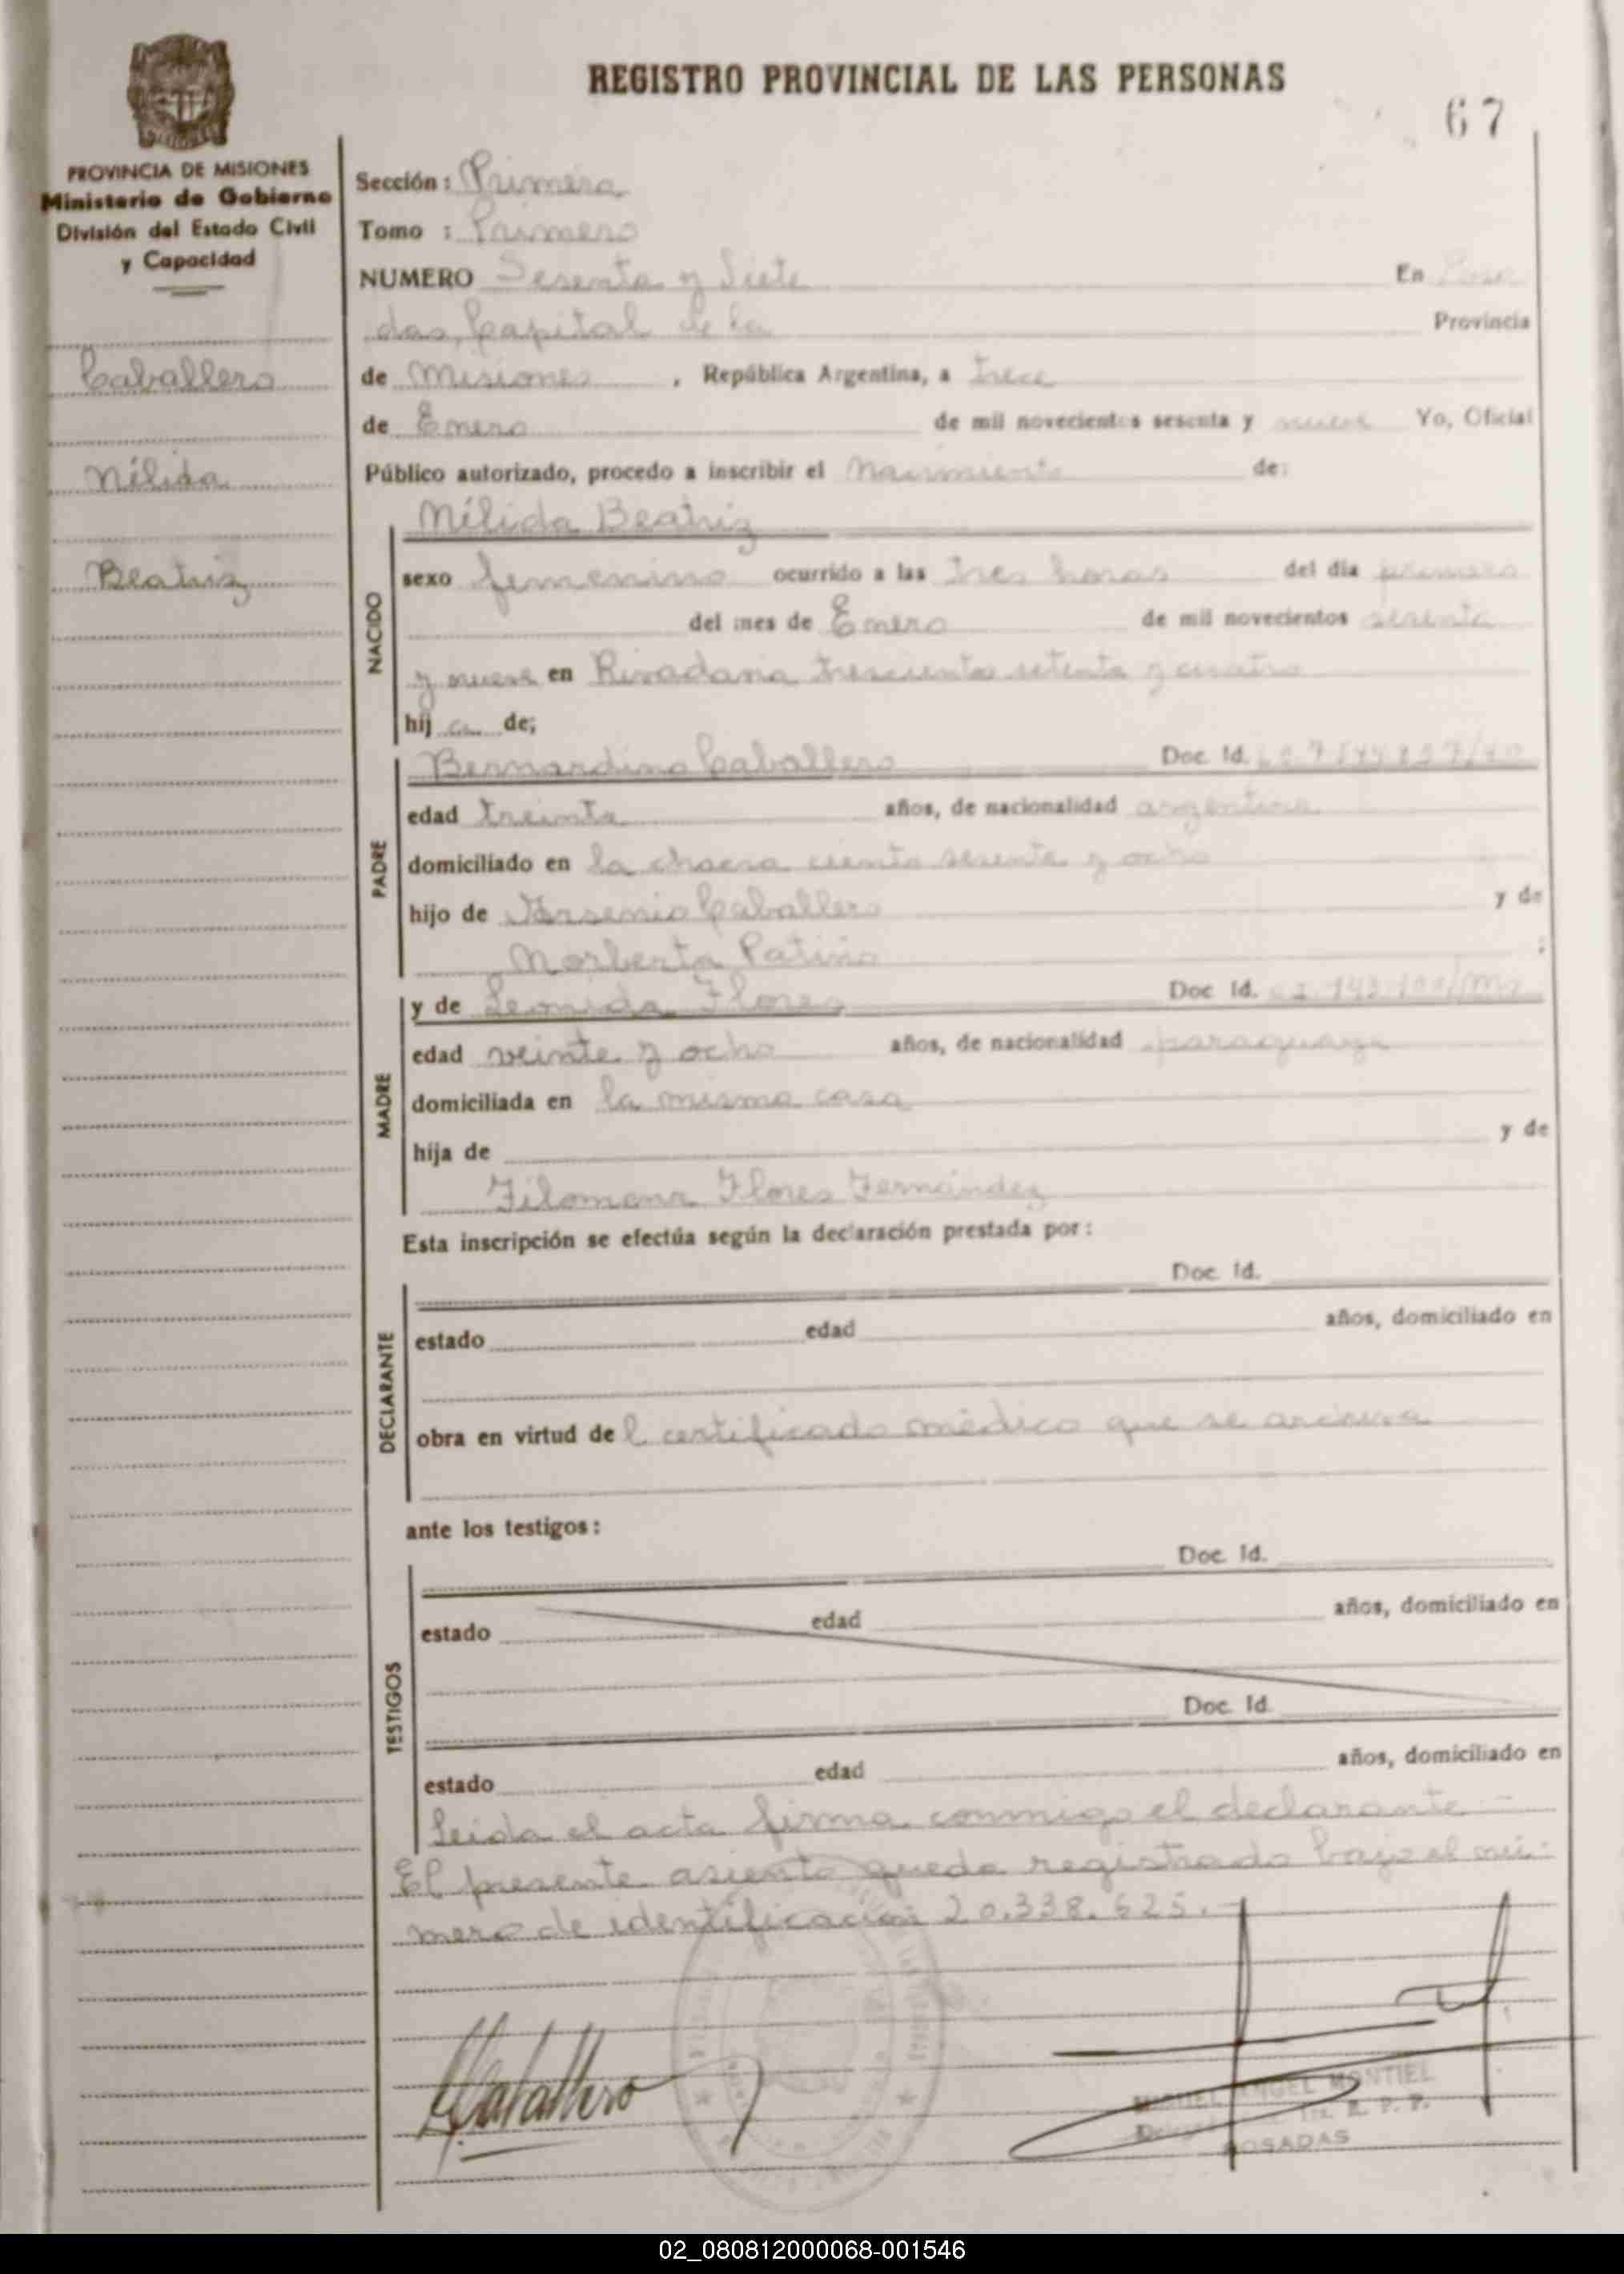 REGISTRO PROVINCIAL DE LAS PERSONAS
67
PROVINCIA DE MISIONES
Ministerio de Gobierno
División del Estado Civil
y Capacidad
Caballero
Nélida
Beatriz
Sección: Primera
Tomo : Primero
NUMERO Sesenta y Siete En Posa
das, Capital de la Provincia
de Misiones, República Argentina, a Trece
de Enero de mil novecientos sesenta y nueve Yo, Oficial
Público autorizado, procedo a inscribir el Nacimiento de:
NACIDO
Nélida Beatriz
sexo femenino ocurrido a las Tres horas del día primero
del mes de Enero de mil novecientos sesenta
y nueve en Rivadavia trescientos setenta y cuatro
hija de;
PADRE
Bernardino Caballero Doc. Id.
edad treinta años, de nacionalidad argentina
domiciliado en la chacra ciento sesenta y ocho
hijo de Arsenio Caballero y de
Norberta Patiño ;
MADRE
y de Leonida Flores Doc Id.
edad veinte y ocho años, de nacionalidad paraguaya
domiciliada en la misma casa
hija de y de
Filomena Flores Fernández
Esta inscripción se efectúa según la declaración prestada por:
DECLARANTE
Doc. Id.
estado edad años, domiciliado en
obra en virtud del certificado médico que se archiva
ante los testigos:
TESTIGOS
Doc. Id.
estado edad años, domiciliado en
Doc. Id.
estado edad años, domiciliado en
Leida el acta firma conmigo el declarante -
El presente asiento queda registrado bajo el nú-
mero de identificación 20.338.625.-
Caballero
MIGUEL ANGEL MONTIEL
R. P. P.
POSADAS
02_080812000068-001546